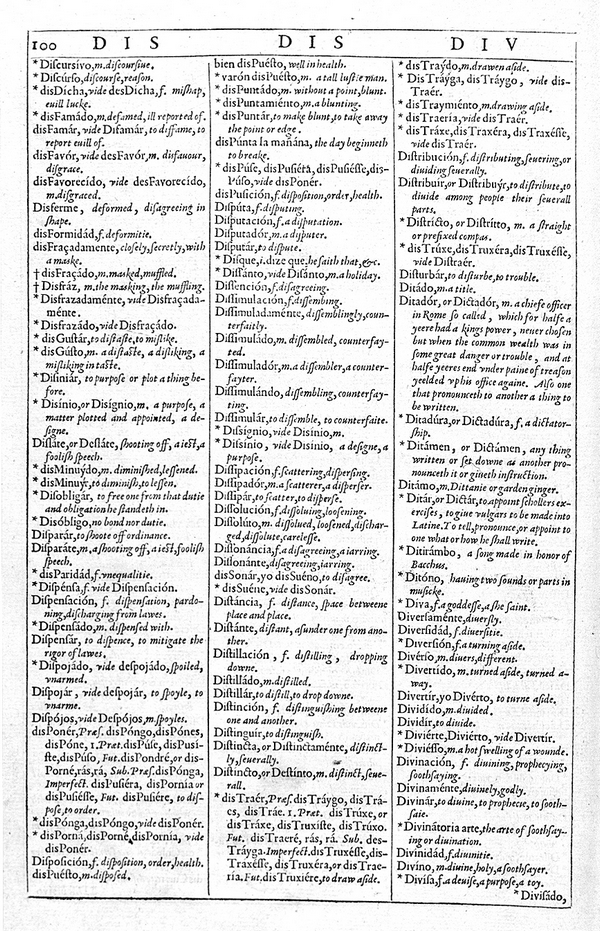 100 DIS DIS DIV
* Diſcursívo, m. diſcourſiue.
* Diſcúrſo, diſcourſe, reaſon.
* disDícha, vide desDicha, f. miſhap,
euill lucke.
* disFamádo, m. defamed, ill reported of.
disFamár, vide Difamár, to diffame, to
report euill of.
disFavór, vide desFavór, m. diſfauour,
diſgrace.
disFavorecído, vide desFavorecído,
m. diſgraced.
Disfórme, deformed, diſagreeing in
ſhape.
disFormidád, f. deformitie.
disFraçadaménte, cloſely, ſecretly, with
a maske.
† disFraçádo, m. masked, muffled.
† Disfráz, m. the masking, the muffling.
* Disfrazadaménte, vide Disfraçada-
ménte.
* Disfrazádo, vide Disfraçádo.
* disGuſtár, to diſtaſte, to miſlike.
* disGúſto, m. a diſtaſte, a diſliking, a
miſliking in taſte.
* Diſiniár, to purpoſe or plot a thing be-
fore.
* Diſínio, or Diſígnio, m. a purpoſe, a
matter plotted and appointed, a de-
ſigne.
Diſláte, or Deſláte, ſhooting off, a ieſt, a
fooliſh ſpeech.
* disMinuýdo, m. diminiſhed, leſſened.
* disMinuýr, to diminiſh, to leſſen.
* Diſobligár, to free one from that dutie
and obligation he ſtandeth in.
* Disóbligo, no bond nor dutie.
Diſparár, to ſhoote off ordinance.
Diſparáte, m. a ſhooting off, a ieſt, fooliſh
ſpeech.
* disParidád, f. vnequalitie.
* Diſpénſa, f. vide Diſpenſación.
Diſpenſación, f. diſpenſation, pardo-
ning, diſcharging from lawes.
* Diſpenſádo, m. diſpenſed with.
Diſpenſár, to diſpence, to mitigate the
rigor of lawes.
* Diſpojádo, vide deſpojádo, ſpoiled,
vnarmed.
Diſpojár, vide deſpojár, to ſpoyle, to
vnarme.
Diſpójos, vide Deſpójos, m. ſpoyles.
disPonér, Præſ. disPóngo, disPónes,
disPóne, 1. Præt. disPúſe, disPusí-
ſte, disPúſo, Fut. disPondré, or dis-
Porné, rás, rá, Sub. Præſ. disPónga,
Imperfect. disPuſiéra, disPornía or
disPuſiéſſe, Fut. disPuſiére, to diſ-
poſe, to order.
* disPónga, disPóngo, vide disPonér.
* disPorná, disPorné, disPornía, vide
disPonér.
Diſpoſición, f. diſpoſition, order, health.
disPuéſto, m. diſpoſed.
bien disPuéſto, well in health.
* varón disPuéſto, m. a tall luſtie man.
* disPuntádo, m. without a point, blunt.
* disPuntamiénto, m. a blunting.
* disPuntár, to make blunt, to take away
the point or edge.
disPúnta la mañána, the day beginneth
to breake.
* disPúſe, disPuſiéra, disPuſiéſſe, dis-
Púſo, vide disPonér.
disPuſición, f. diſpoſition, order, health.
Diſpúta, f. diſputing.
Diſputación, f. a diſputation.
Diſputadór, m. a diſputer.
Diſputár, to diſpute.
* Diſque, i. dize que, he ſaith that, &c.
* Diſſánto, vide Diſánto, m. a holiday.
Diſſención, f. diſagreeing.
Diſſimulación, f. diſſembing.
Diſſimuladaménte, diſſemblingly, coun-
terfaitly.
Diſſimuládo, m. diſſembled, counterfay-
ted.
Diſſimuladór, m. a diſſembler, a counter-
fayter.
Diſſimulándo, diſſembling, counterfay-
ting.
Diſſimulár, to diſſemble, to counterfaite.
* Diſſígnio, vide Diſínio, m.
* Diſſínio, vide Diſínio, a deſigne, a
purpoſe.
Diſſipación, f. ſcattering, diſperſing.
Diſſipadór, m. a ſcatterer, a diſperſer.
Diſſipár, to ſcatter, to diſperſe.
Diſſolución, f. diſſoluing, looſening.
Diſſolúto, m. diſſolued, looſened, diſchar-
ged, diſſolute, careleſſe.
Diſſonáncia, f. a diſagreeing, a iarring.
Diſſonánte, diſagreeing, iarring.
disSonár, yo disSuéno, to diſagree.
* disSuéne, vide disSonár.
Diſtáncia, f. diſtance, ſpace betweene
place and place.
Diſtánte, diſtant, aſunder one from ano-
ther.
Diſtillación, f. diſtilling, dropping
downe.
Diſtilládo, m. diſtilled.
Diſtillár, to diſtill, to drop downe.
Diſtinción, f. diſtinguiſhing betweene
one and another.
Diſtinguír, to diſtinguiſh.
Diſtíncta, or Diſtinctaménte, diſtinct-
ly, ſeuerally.
Diſtíncto, or Deſtínto, m. diſtinct, ſeue-
rall.
* disTraér, Præſ. disTráygo, disTrá-
es, disTráe. 1. Præt. disTrúxe, or
disTráxe, disTruxíſte, disTrúxo.
Fut. disTraeré, rás, rá. Sub. des-
Tráyga. Imperfect. disTruxéſſe, dis-
Traxéſſe, disTruxéra, or disTrae-
ría. Fut. disTruxiére, to draw aſide.
* disTraýdo, m. drawen aſide.
* DisTráyga, disTráygo, vide dis-
Traér.
* disTraymiénto, m. drawing aſide.
* disTraería, vide disTraér.
* disTráxe, disTraxéra, disTraxéſſe,
vide disTraér.
Diſtribución, f. diſtributing, ſeuering, or
diuiding ſeuerally.
Diſtribuír, or Diſtribuýr, to diſtribute, to
diuide among people their ſeuerall
parts.
* Diſtrícto, or Diſtrítto, m. a ſtraight
or prefixed compas.
* disTrúxe, disTruxéra, disTruxéſſe,
vide Diſtraér.
Diſturbár, to diſturbe, to trouble.
Ditádo, m. a title.
Ditadór, or Dictadór, m. a chiefe officer
in Rome ſo called, which for halfe a
yeere had a kings power, neuer choſen
but when the common wealth was in
ſome great danger or trouble, and at
halfe yeeres end vnder paine of treaſon
yeelded vp his office againe. Alſo one
that pronounceth to another a thing to
be written.
* Ditadúra, or Dictadúra, f. a dictator-
ſhip.
* Ditámen, or Dictámen, any thing
written or ſet downe as another pro-
nounceth it or giueth inſtruction.
Ditámo, m. Dittanie or garden ginger.
* Ditár, or Dictár, to appoint ſchollers ex-
erciſes, to giue vulgars to be made into
Latine. To tell, pronounce, or appoint to
one what or how he ſhall write.
* Ditirámbo, a ſong made in honor of
Bacchus.
* Ditóno, hauing two ſounds or parts in
muſicke.
* Díva, f. a goddeſſe, a ſhe ſaint.
Diverſaménte, diuerſly.
Diverſidád, f. diuerſitie.
* Diverſión, f. a turning aſide.
Divérſo, m. diuers, different.
* Divertído, m. turned aſide, turned a-
way.
Divertír, yo Diviérto, to turne aſide.
Dividído, m. diuided.
Dividír, to diuide.
* Diviérte, Diviérto, vide Divertír.
* Diviéſſo, m. a hot ſwelling of a wounde.
Divinación, f. diuining, prophecying,
ſoothſaying.
Divinaménte, diuinely, godly.
Divinár, to diuine, to prophecie, to ſooth-
ſaie.
* Divinatória arte, the arte of ſoothſay-
ing or diuination.
Divinidád, f. diuinitie.
Divíno, m. diuine, holy, a ſoothſayer.
* Divíſa, f. a deuiſe, a purpoſe, a toy.
* Diviſádo,